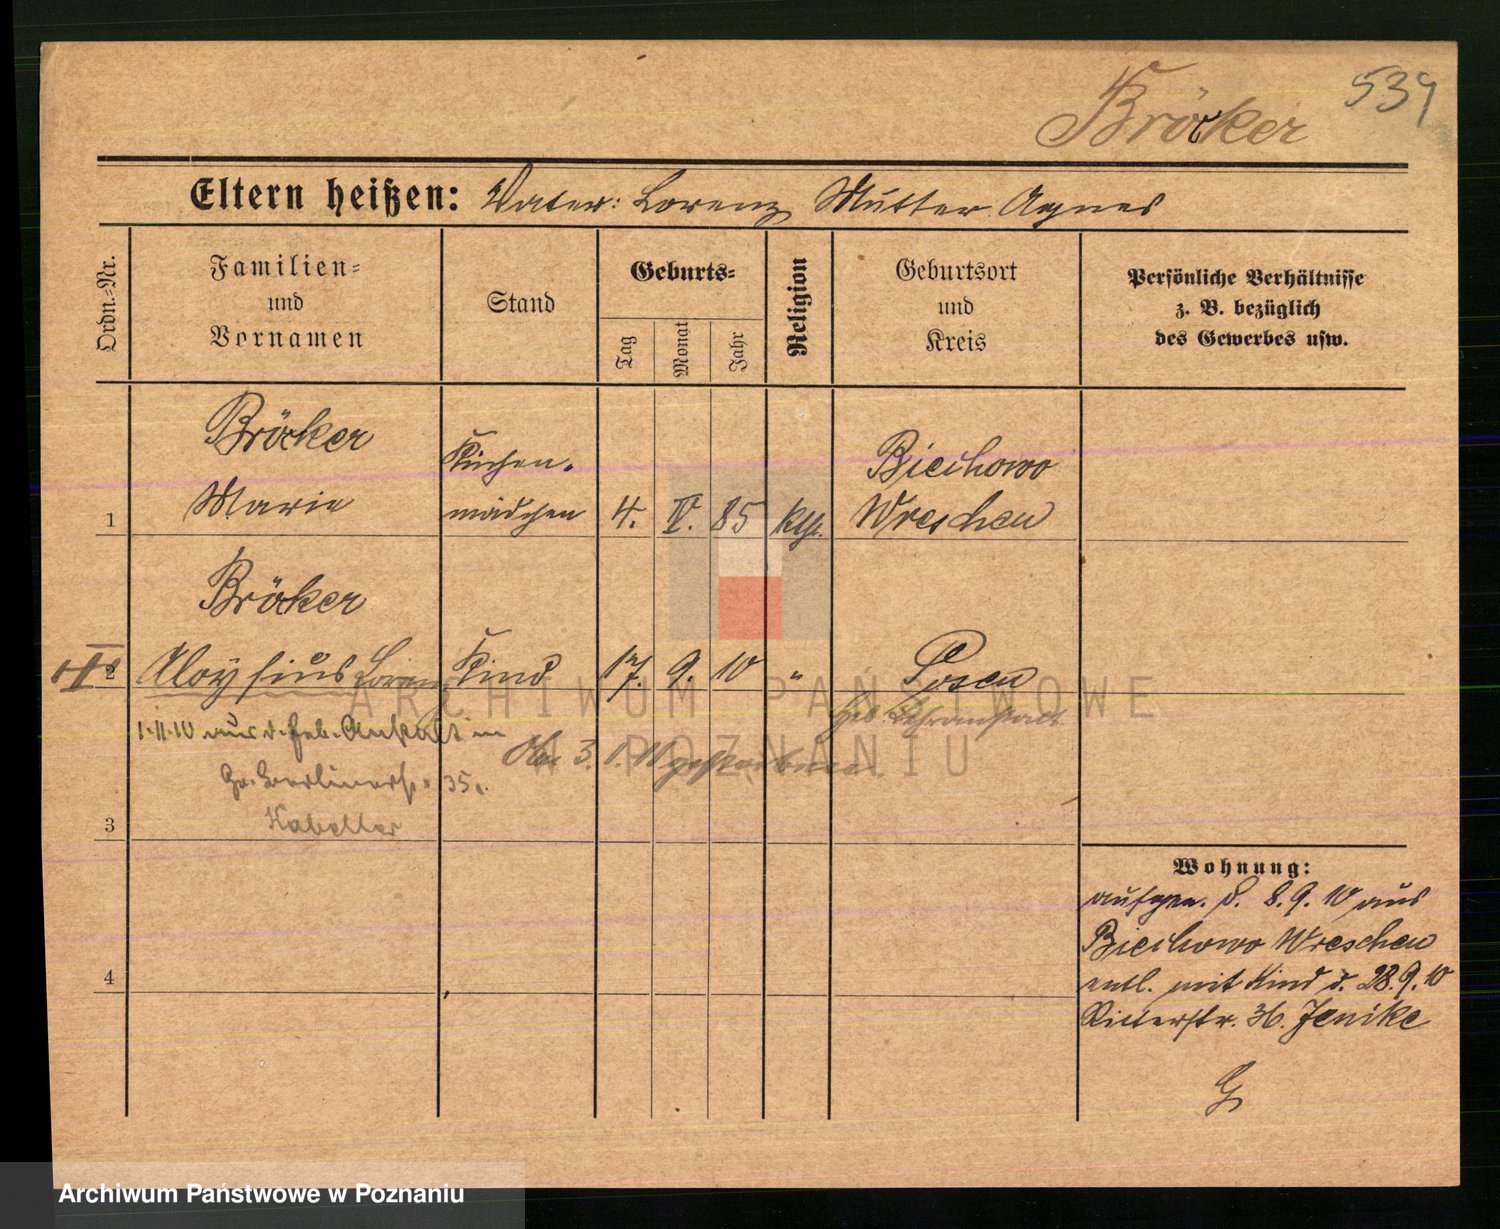 539
Bröcker
Eltern heißen: Vater: Lorenz Mutter Agnes
Ordn.-Nr.
Familien-
und
Vornamen
Stand
Geburts-
Tag
Monat
Jahr
Religion
Geburtsort
und
Kreis
Persönliche Verhältnisse
z. B. bezüglich
des Gewerbes usw.
Bröcker
Marie
Küchen-
mädchen
1
4. IV. 85 kth.
Biechowo
Wreschen
Bröker
2
Aloysius Lorenz
Kind
17. 9. 10 "
Posen
Geb. Lehranstalt
1.11.10 aus d. Heb. Anstalt in
3. 1. 11 gestorben
Gr. Berlinerstr. 35.
3
4
Wohnung:
aufgen. d. 8.9.10 aus
Biechowo Wreschen
entl. mit Kind d. 28.9.10
Ritterstr. 36. Jenike
G
ARCHIWUM PAŃSTWOWE
W POZNANIU
Archiwum Państwowe w Poznaniu